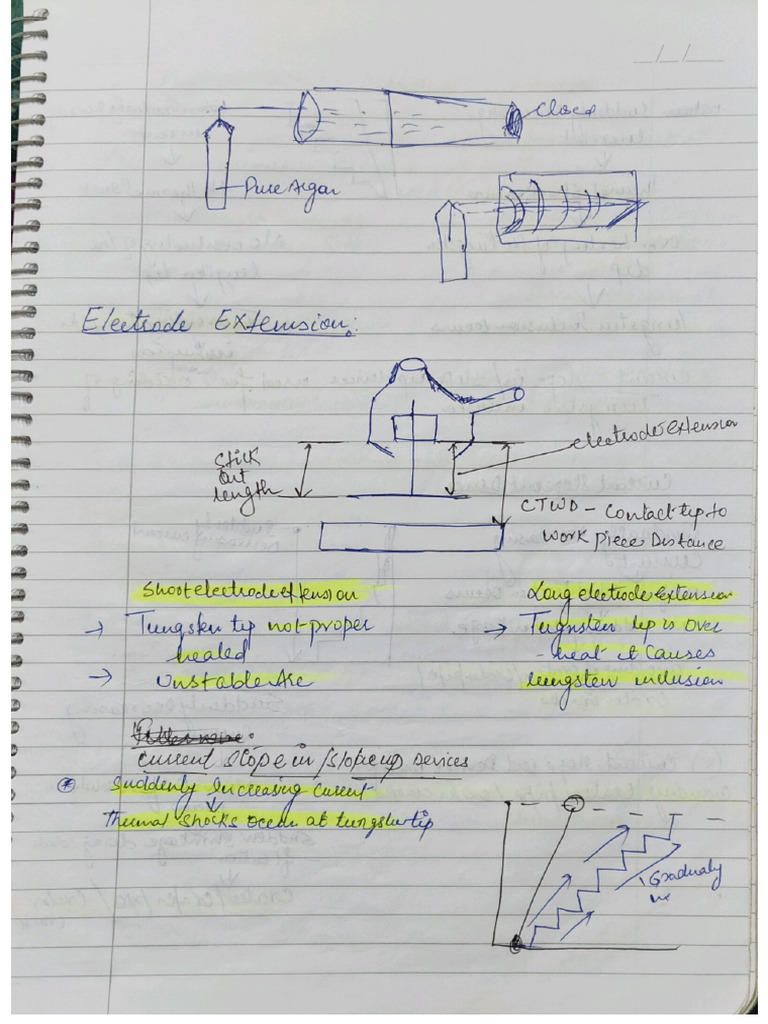 _/_/__
Closed
Pure Argan
Electrode Extension:
electrode extension
Stick
out
length
CTWD - Contact tip to
work piece Distance
Short electrode extension
→ Tungsten tip not proper
healed
→ Unstable Arc
Long electrode extension
→ Tugnsten tip is over
- heat it causes
tungsten inclusion
current slope in / slope up Devices
* Suddenly Increasing current
↓
Thermal shocks occur at tungsten tip
Gradualy